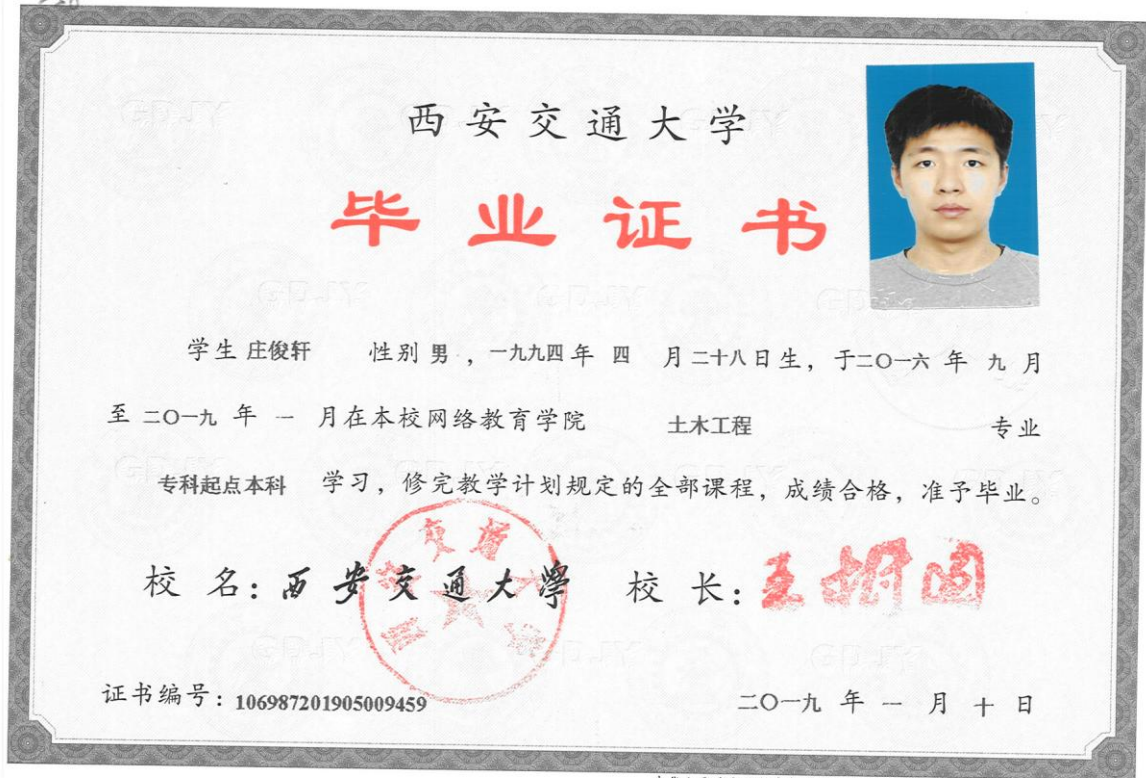 西安交通大学
毕业证书
学生 庄俊轩 性别 男 ，一九九四 年 四 月 二十八 日生，于二〇一六 年 九 月
至 二〇一九 年 一 月在本校网络教育学院 土木工程 专业
专科起点本科 学习，修完教学计划规定的全部课程，成绩合格，准予毕业。
校 名：西安交通大學 校 长：王树国
证书编号：106987201905009459 二〇一九 年 一 月 十 日
GDJY